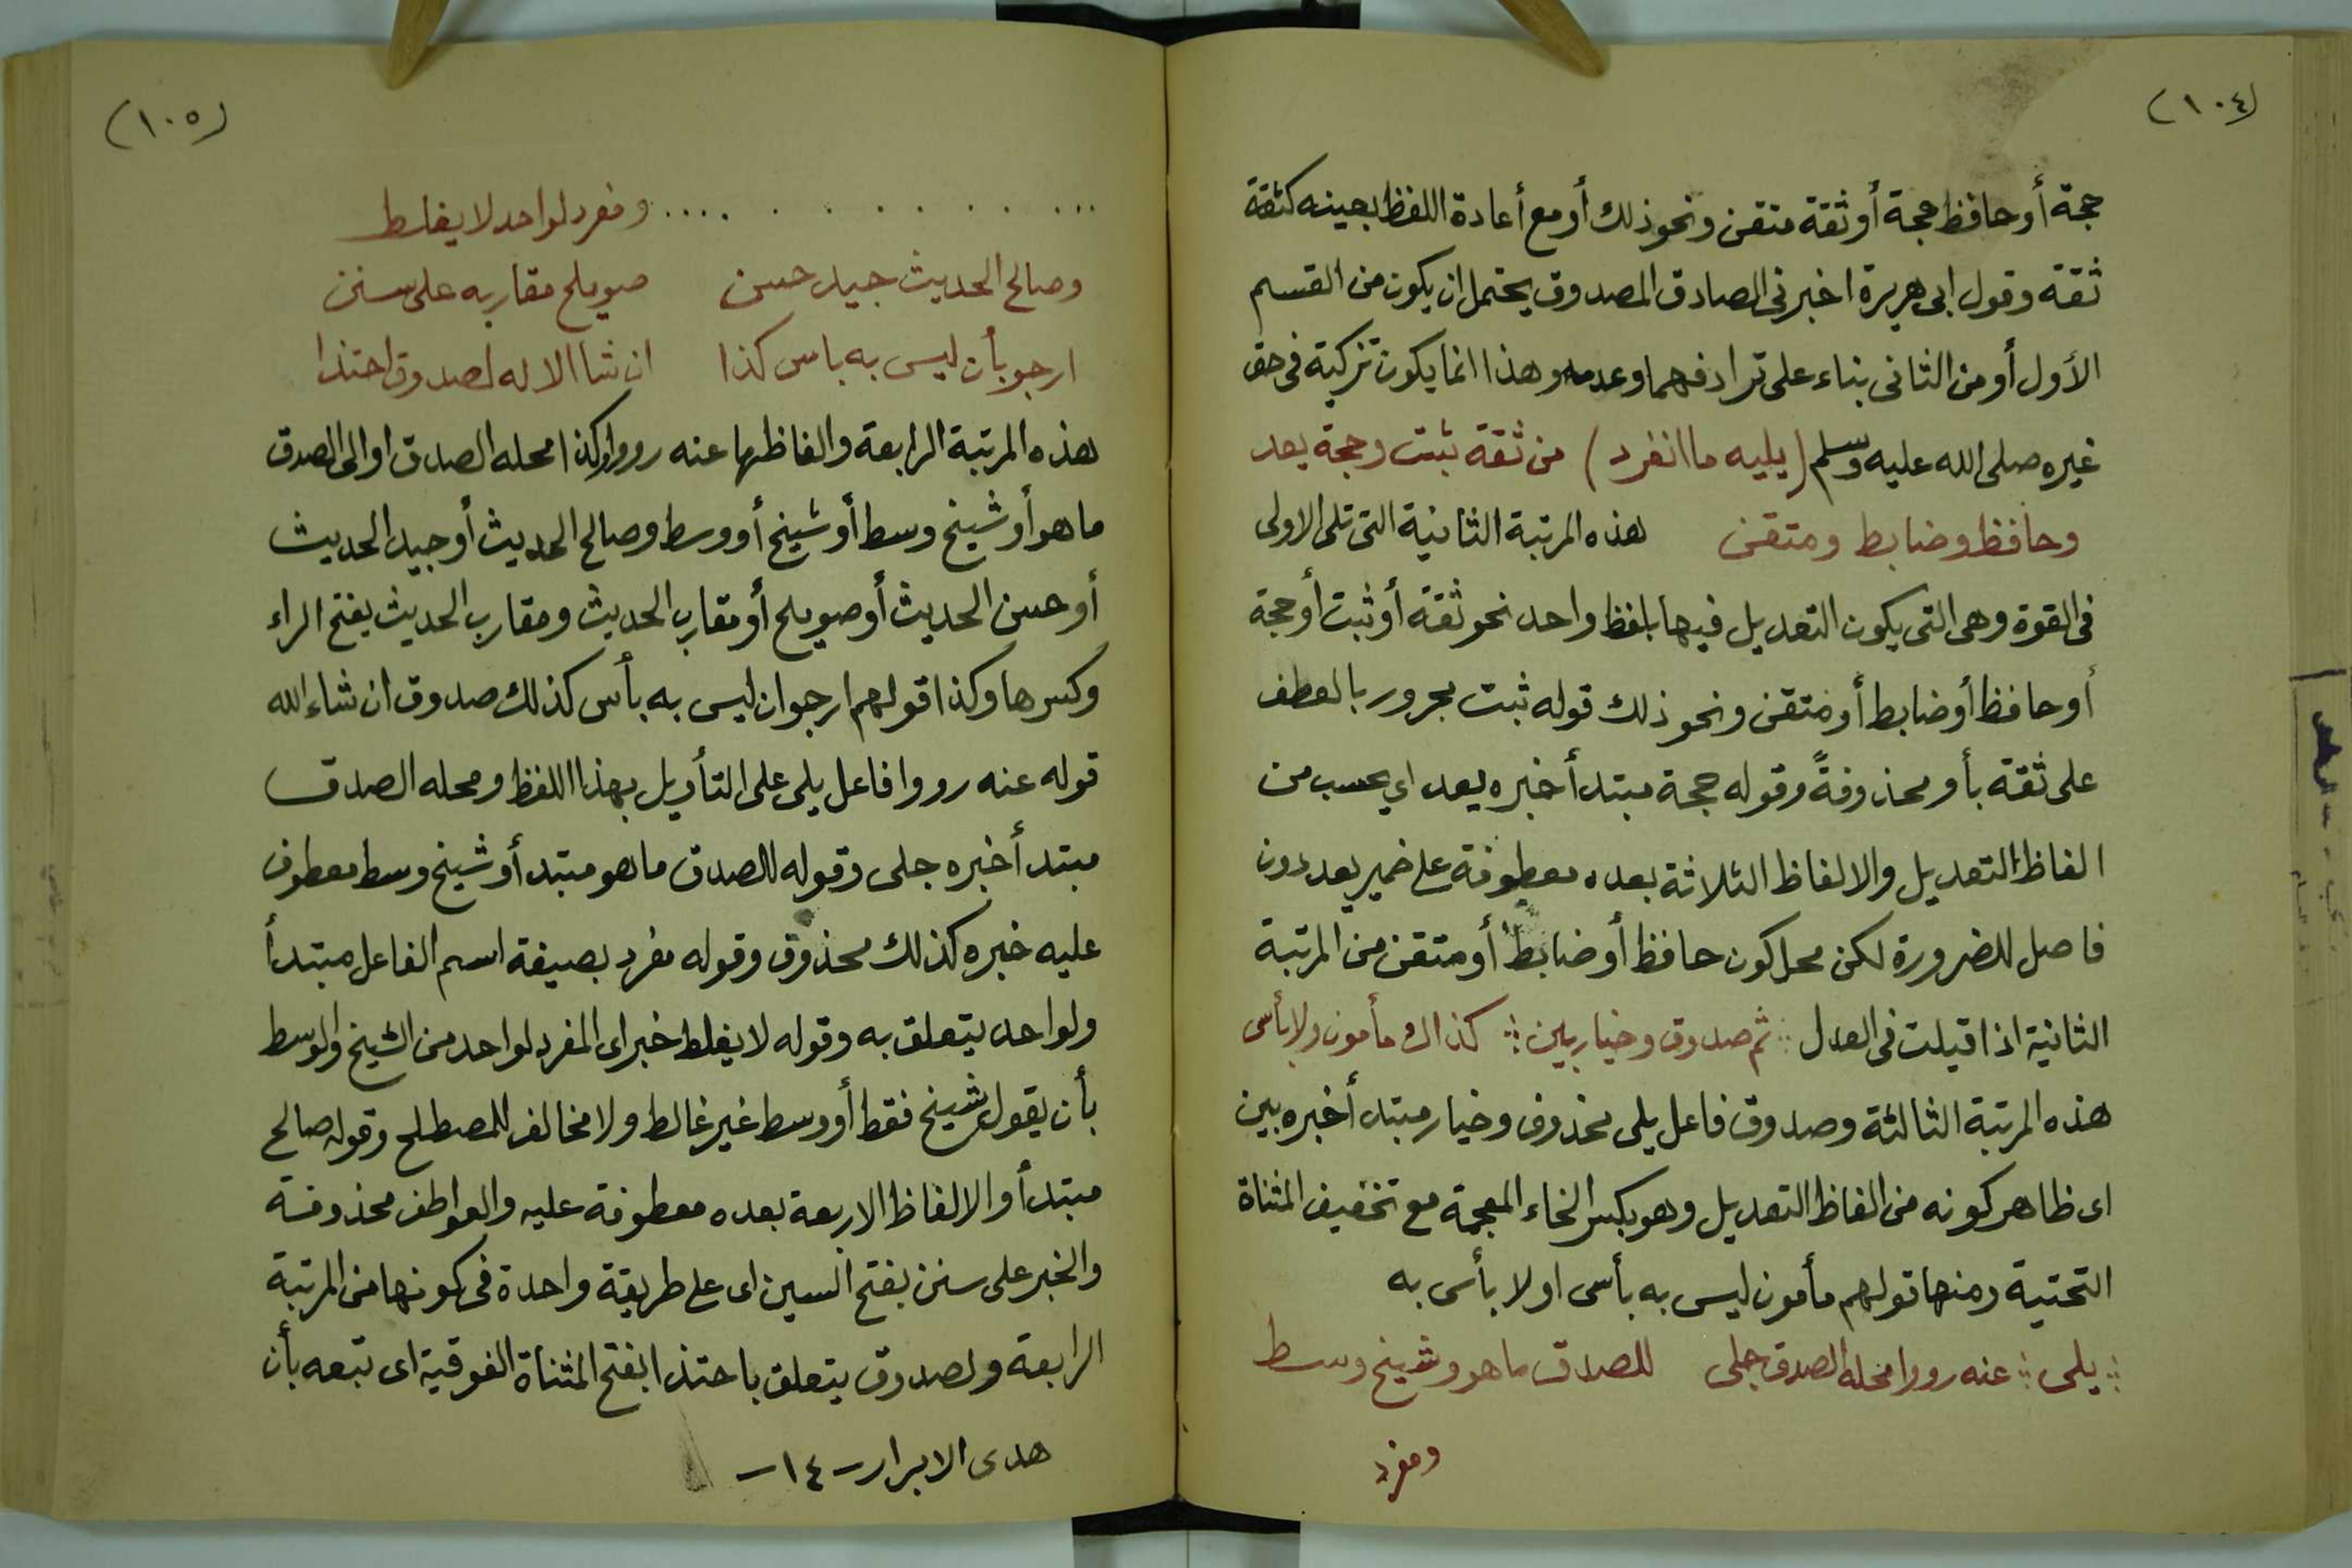 (١٠٤)
حجة أو حافظ حجة أو ثقة متقن ونحو ذلك أو مع أعادة اللفظ بعينه كثقة
ثقة وقول ابى هريرة اخبرنى الصادق المصدوق يحتمل ان يكون من القسم
الأول أو من الثانى بناء على ترادفهما وعدمه وهذا انما يكون تزكية فى حق
غيره صلى الله عليه وسلم (يليه ما انفرد) من ثقة ثبت وحجة يعد
وحافظ وضابط ومتقن هذه المرتبة الثانية التى تلى الاولى
فى القوة وهى التى يكون التعديل فيها بلفظ واحد نحو ثقة أو ثبت أو حجة
أو حافظ أو ضابط أو متقن ونحو ذلك قوله ثبت مجرور بالعطف
على ثقة بأو محذوفةً وقوله حجة مبتدأ خبره يعد اي يحسب من
الفاظ التعديل والالفاظ الثلاثة بعده معطوفة على ضمير يعد دون
فاصل للضرورة لكن محل كون حافظ أو ضابط أو متقن من المرتبة
الثانية اذا قيلت فى العدل ثم صدوق وخيار بين كذاك مأمون ولا بأس
هذه المرتبة الثالثة وصدوق فاعل يلى محذوف وخيار مبتدأ خبره بين
اى ظاهر كونه من الفاظ التعديل وهو بكسر الخاء المعجمة مع تخفيف المثناة
التحتية ومنها قولهم مأمون ليس به بأس او لا بأس به
يلى عنه رووا محله الصدق جلى للصدق ما هو وشيخ وسط
ومفرد
(١٠٥)
.............. ومفرد لواحد لا يغلط
وصالح الحديث جيد حسن صويلح مقاربه على سنن
ارجو بأن ليس به باس كذا ان شا الاله لصدوق احتذا
هذه المرتبة الرابعة والفاظها عنه رووا وكذا محله الصدق او الى الصدق
ما هو أو شيخ وسط أو شيخ أو وسط وصالح الحديث أو جيد الحديث
أو حسن الحديث أو صويلح أو مقارب الحديث ومقارب الحديث بفتح الراء
وكسرها وكذا قولهم ارجو ان ليس به بأس كذلك صدوق ان شاء الله
قوله عنه رووا فاعل يلى على التأويل بهذا اللفظ ومحله الصدق
مبتدأ خبره جلى وقوله للصدق ما هو مبتدأ وشيخ وسط معطوف
عليه خبره كذلك محذوف وقوله مفرد بصيغة اسم الفاعل مبتدأ
ولواحد يتعلق به وقوله لا يغلط خبر اى المفرد لواحد من الشيخ والوسط
بأن يقول شيخ فقط أو وسط غير غالط ولا مخالف للمصطلح وقوله صالح
مبتدأ والالفاظ الاربعة بعده معطوفة عليه والعواطف محذوفة
والخبر على سنن بفتح السين اى على طريقة واحدة فى كونها من المرتبة
الرابعة ولصدوق يتعلق باحتذا بفتح المثناة الفوقية اى تبعه بأن
هدى الابرار - ١٤ -